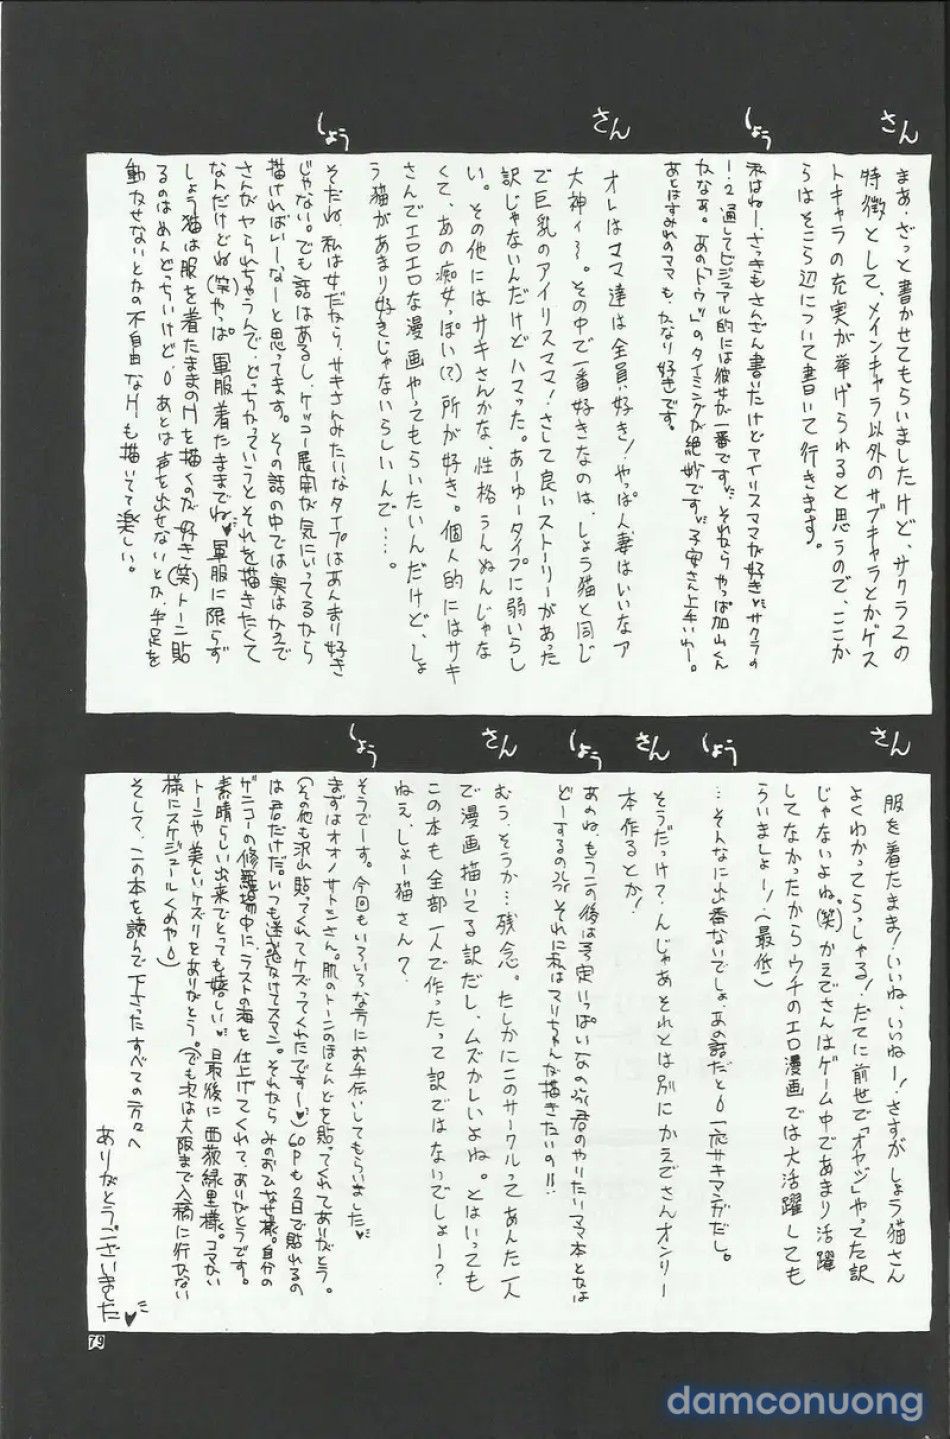 さん
まあ、ざっと書かせてもらいましたけど、サクラ2の
特徴として、メインキャラ以外のサブキャラとかゲス
トキャラの充実が挙げられると思うので、ここか
らはそこら辺について書いて行きます。
しょう
私はねー、さっきもさんざん書いたけどアイリスママが好き♥サクラの
1・2通してビジュアル的には彼女が一番です。それからやっぱ加山くん
かなぁ。あの「トウ!」のタイミングが絶妙です。子安さん上手いわー。
あとはすみれのママも、かなり好きです。
さん
オレはママ達は全員好き!やっぱ人妻はいいなァ
大神ィ〜。その中で一番好きなのは、しょう猫と同じ
で巨乳のアイリスママ!さして良いストーリーがあった
訳じゃないんだけどハマった。あーゆータイプに弱いらし
い。その他にはサキさんかな、性格うんぬんじゃな
くて、あの痴女っぽい(?)所が好き。個人的にはサキ
さんでエロエロな漫画やってもらいたいんだけど、しょ
う猫があまり好きじゃないらしいんで……。
しょう
そだね、私は女だから、サキさんみたいなタイプはあんまり好き
じゃない。でも話はあるし、ケッコー展開が気にいってるなら
描ければいーなーと思ってます。その話の中では実はかえで
さんがヤられちゃうんで、どっちかっていうとそれを描きたくて
なんだけどね(笑)やっぱ軍服着たままでね♥軍服に限らず
しょう猫は服を着たままのHを描くのが好き(笑)トーン貼
るのはめんどっちいけど。あとは声を出せないとか、手足を
動かせないとかの不自由なH、も描いてて楽しい。
さん
服を着たまま!いいね、いいねー!さすがしょう猫さん
よくわかってらっしゃる!だてに前世で「オヤジ」やってた訳
じゃないよね。(笑)かえでさんはゲーム中であまり活躍
してなかったからウチのエロ漫画では大活躍しても
らいましょー!(最低)
しょう
…そんなに出番ないでしょ、あの話だと。一応サキマンガだし。
さん
そうだっけ?んじゃあそれとは別にかえでさんオンリー
本作るとか!
しょう
あのね、もうこの後は予定いっぱいなの。君のやりたいママ本とかは
どーするの。それに私はマリちゃんが描きたいの!!
さん
むう、そうか…残念。たしかにこのサークルってあんた一人
で漫画描いてる訳だし、ムズかしいよね。とはいっても
この本も全部一人で作ったって訳ではないでしょー?
ねえ、しょー猫さん?
しょう
そうでーす。今回もいろいろな方にお手伝いしてもらいました♥
まずはオオノサトシさん。肌のトーンのほとんどを貼ってくれてありがとう。
(その他も沢山貼ってくれてケズってくれたですー♥)60Pも2日で貼れるの
は君だけだ。いつも迷惑かけてスマン。それからみのおひなせ様。自分の
ザンコーの修羅場中に、ラストの海を仕上げてくれて、ありがとうです。
素晴らしい出来でとっても嬉しい♥最後に西荻緑里様。コマかい
トーンや美しいケズリをありがとう。(でも次は大阪まで入稿に行かない
様にスケジュールくめや)
そして、この本を読んで下さったすべての方々へ
ありがとうございました♥
79
damconuong